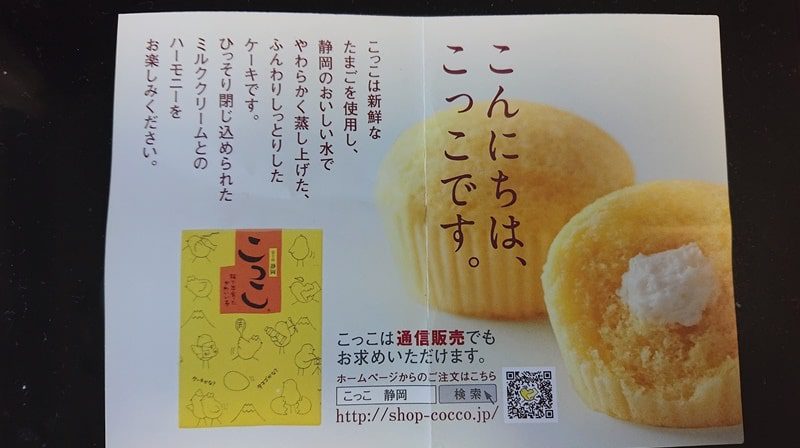 こんにちは、
こっこです。
こっこは新鮮な
たまごを使用し、
静岡のおいしい水で
やわらかく蒸し上げた、
ふんわりしっとりした
ケーキです。
ひっそり閉じ込められた
ミルククリームとの
ハーモニーを
お楽しみください。
静岡
こっこ
こっこは通信販売でも
お求めいただけます。
ホームページからのご注文はこちら
こっこ 静岡 検索
http://shop-cocco.jp/